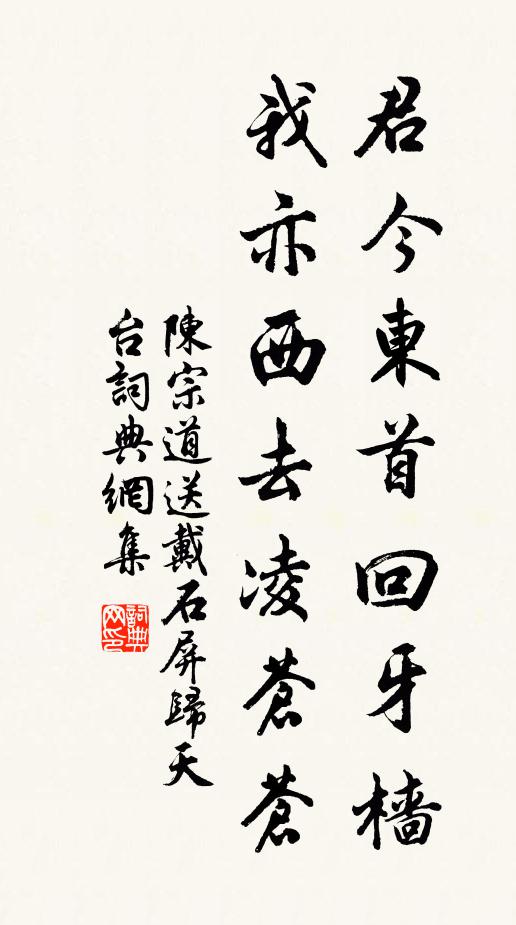 君今東首回牙檣
我亦西去凌蒼蒼
陳宗道送戴石屏歸天
台詞典網集
詞典
网印